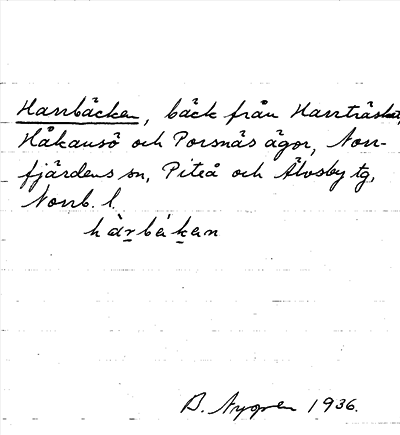 Harrbäcken, bäck från Harrträsket,
Håkansö och Porsnäs ägor, Norr-
fjärdens sn, Piteå och Älvsby tg,
Norrb. l.
hàr̲bék̲en
B. Nygren 1936.